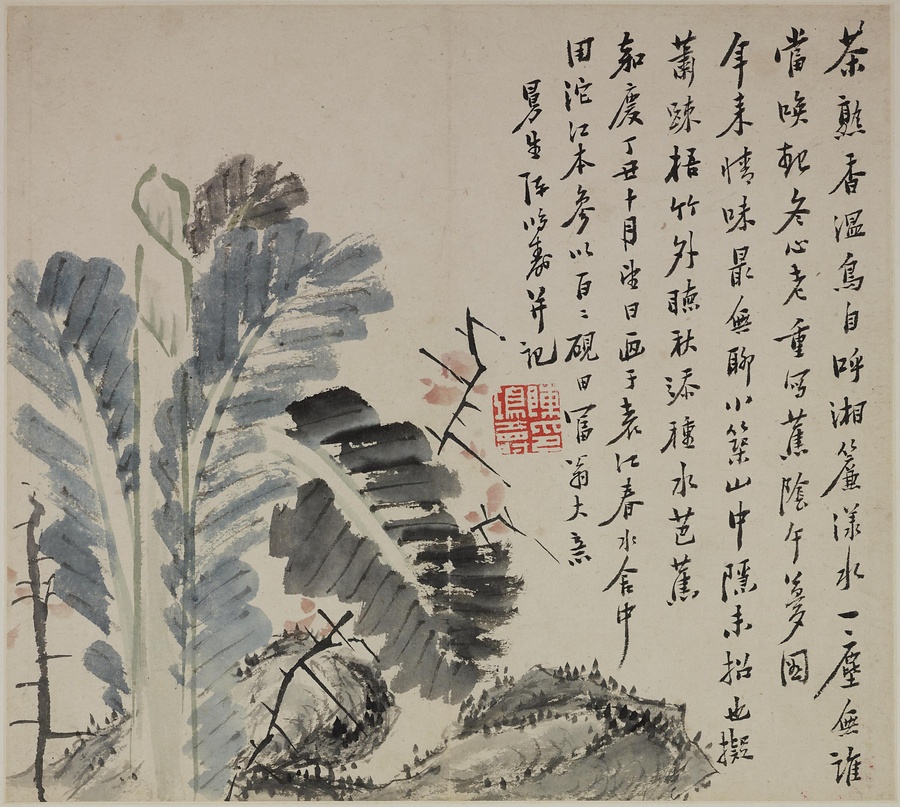 茶熟香溫鳥自呼湘簾漾水一塵無誰
當喚起冬心老重寫蕉陰午夢圖
年来情味最無聊小築山中隱未招也擬
蕭踈梧竹外聽秋添種水芭蕉
嘉慶丁丑十月望日画于袁江春水舍中
用沱江本參以百二硯田富翁大意
曼生陳鴻壽并記
陳鴻壽印